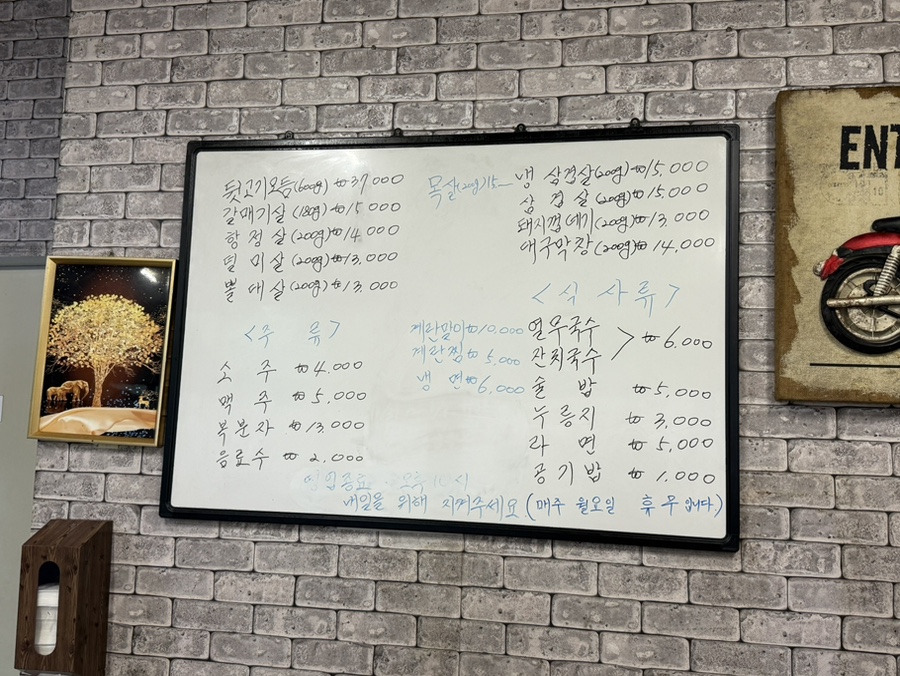 뒷고기모듬(600g) ₩37,000
갈매기살(180g) ₩15,000
항정살(200g) ₩14,000
덜미살(200g) ₩13,000
뽈대살(200g) ₩13,000
목살(200g)15-
냉삼겹살(200g) ₩15,000
삼겹살(200g) ₩15,000
돼지껍데기(200g) ₩13,000
대구막창(200g) ₩14,000
<주 류>
소 주 ₩4,000
맥 주 ₩5,000
복분자 ₩13,000
음료수 ₩2,000
계란말이 ₩10,000
계란찜 ₩5,000
냉 면 ₩6,000
<식 사 류>
열무국수
잔치국수 > ₩6,000
술 밥 ₩5,000
누릉지 ₩3,000
라 면 ₩5,000
공기밥 ₩1,000
영업종료 · 오후 10시
내일을 위해 지켜주세요 (매주 월요일 휴무입니다.)
ENT